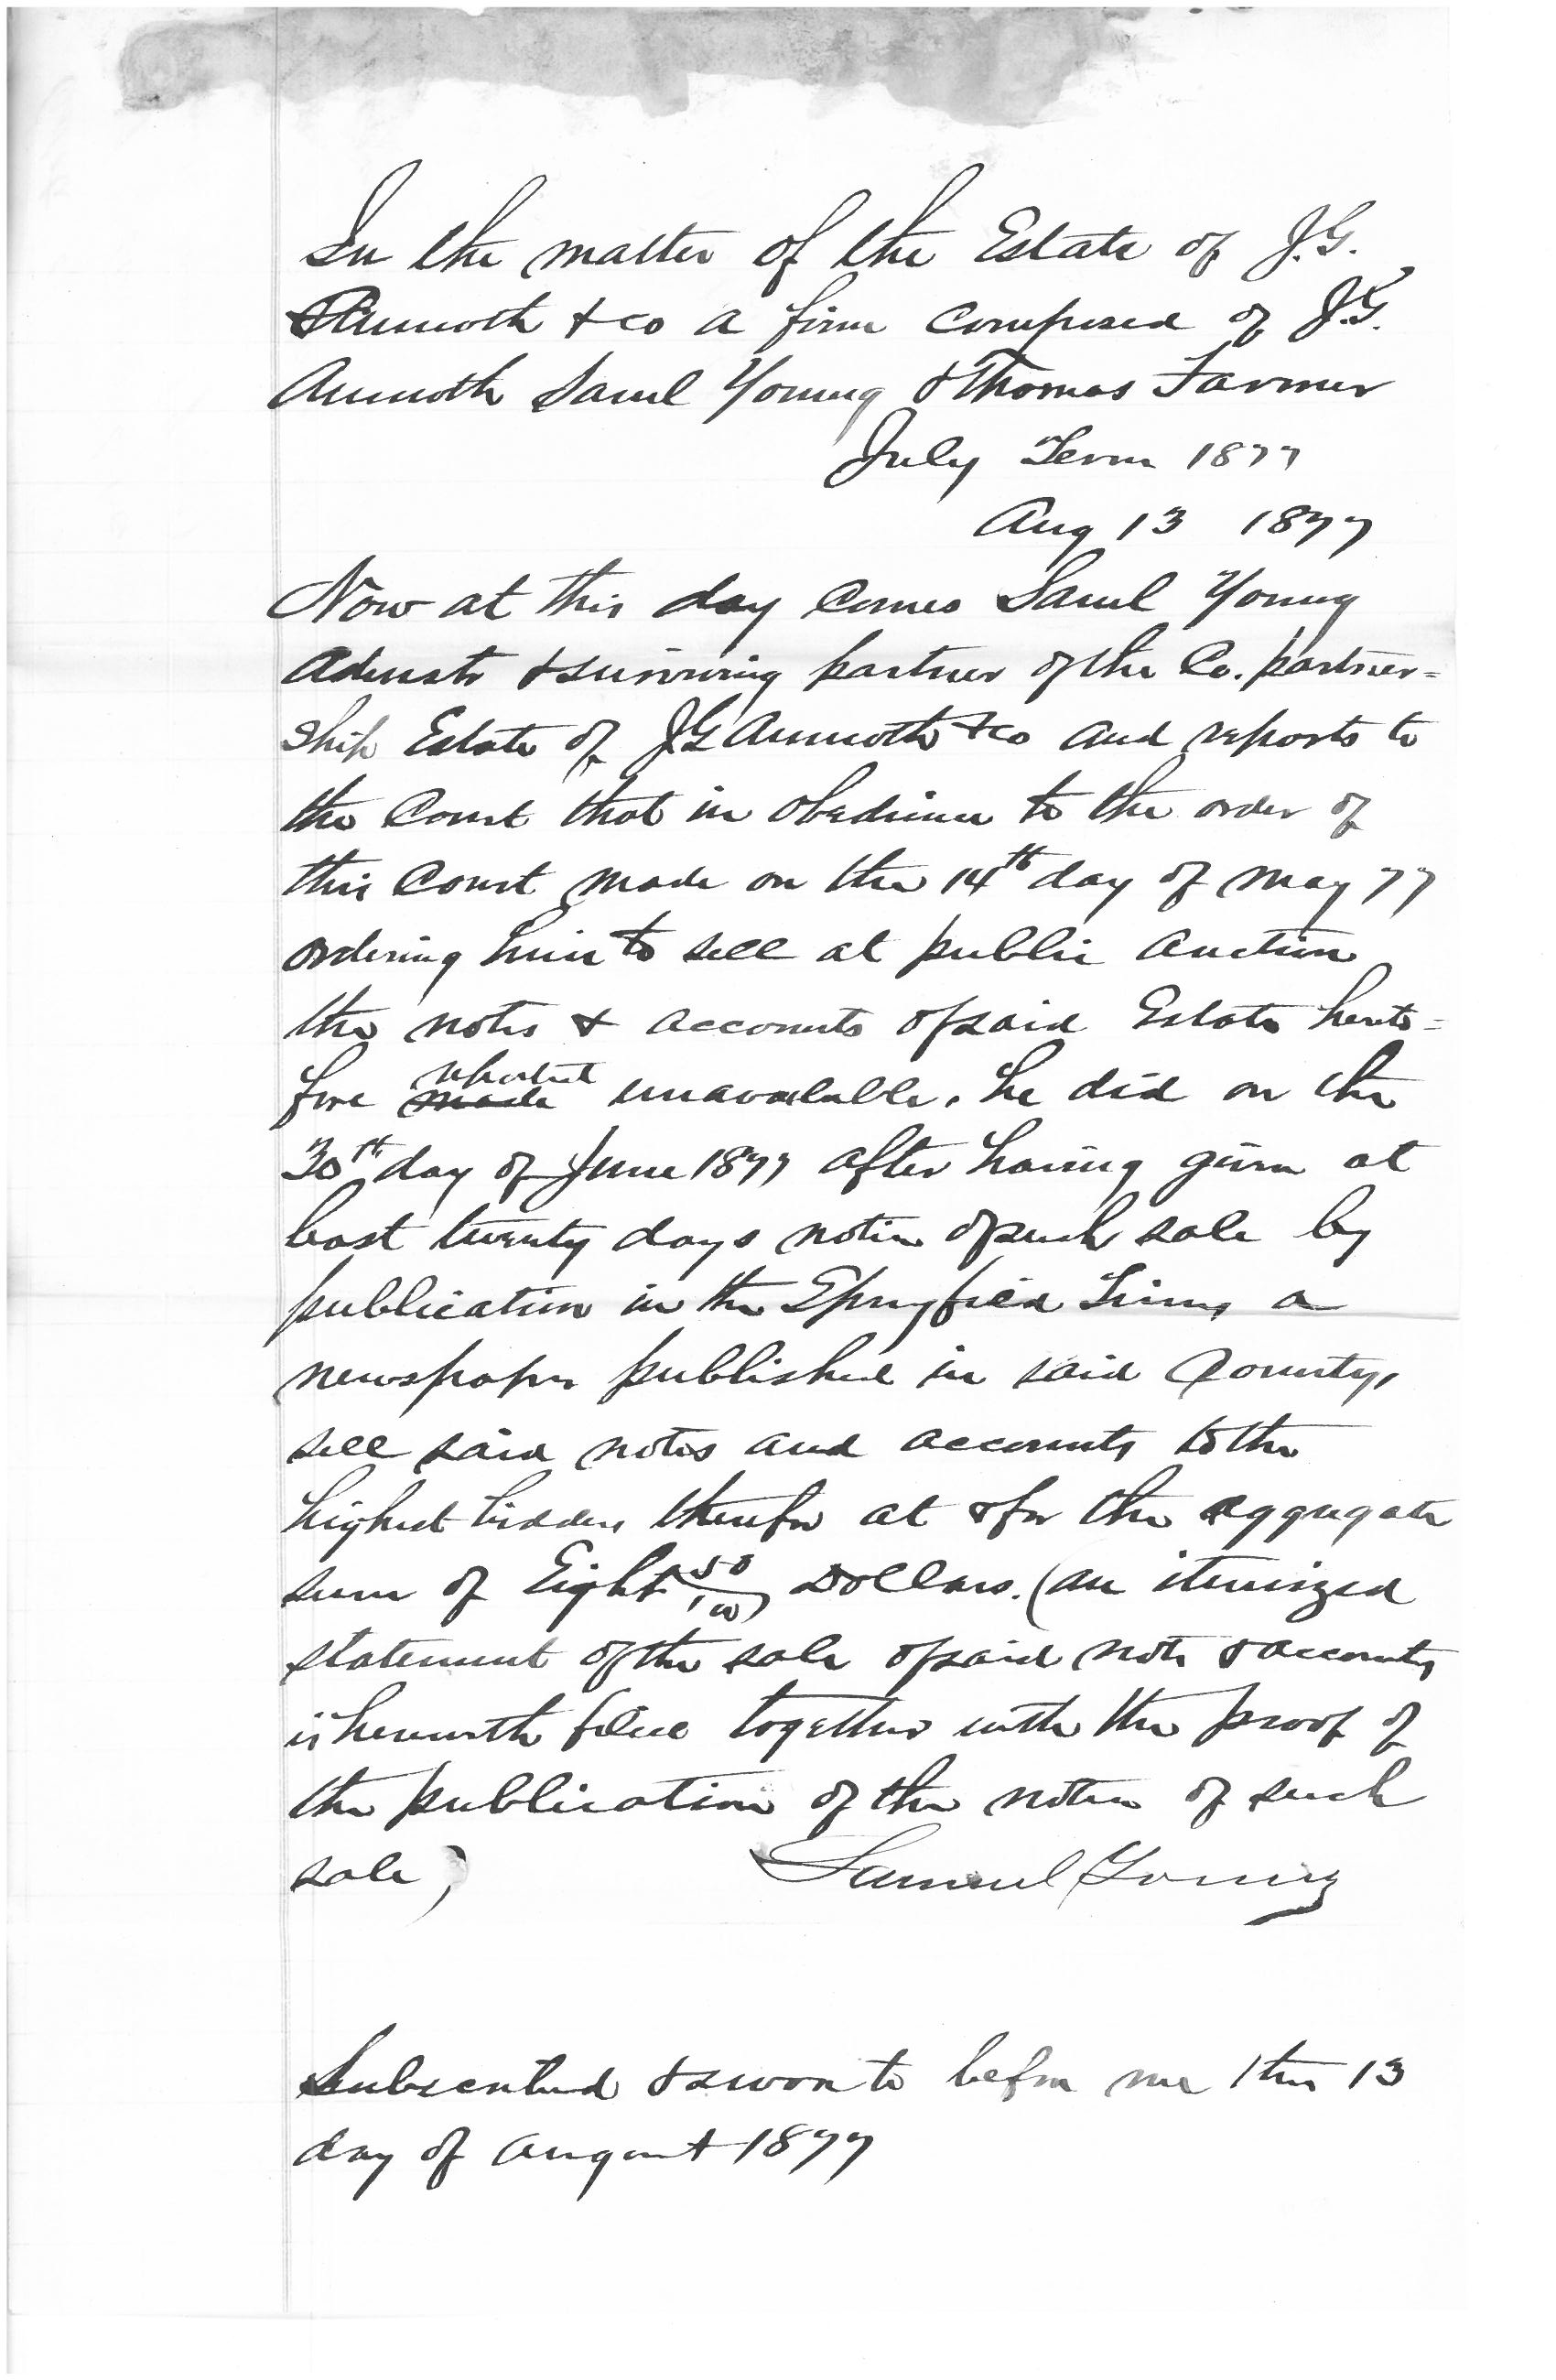 In the matter of the Estate of J.G.
Ammoth & co a firm composed of J.G.
Ammoth Saml Young & Thomas Farmer
July Term 1877
Aug 13 1877
Now at this day comes Saml Young
Admstr & surviving partner of the Co. partner=
ship Estate of J G Ammoth & co and reports to
the Court that in obedience to the order of
this Court made on the 14th day of May 77
ordering him to sell at public auction
the notes & accounts of said Estate hereto=
fore made reported unavailable, he did on the
30th day of June 1877 after having given at
least twenty days notice of such sale by
publication in the Springfield Times a
newspaper published in said County,
sell said notes and accounts to the
highest bidders therefor at & for the aggregate
sum of Eight 50/100 Dollars. (an itemized
statement of the sale of said note & accounts
is herewith filed together with the proof of
the publication of the notice of such
sale)
Samuel Young
Subscribed & sworn to before me this 13
day of August 1877